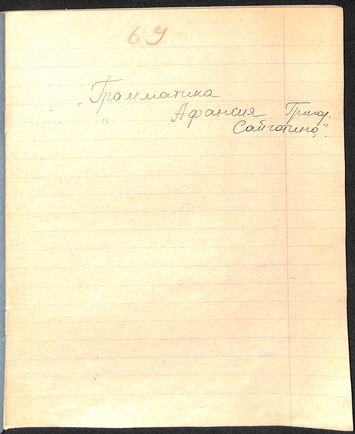 69
„Грамматика
" Афансия Григ.
Сайготина".